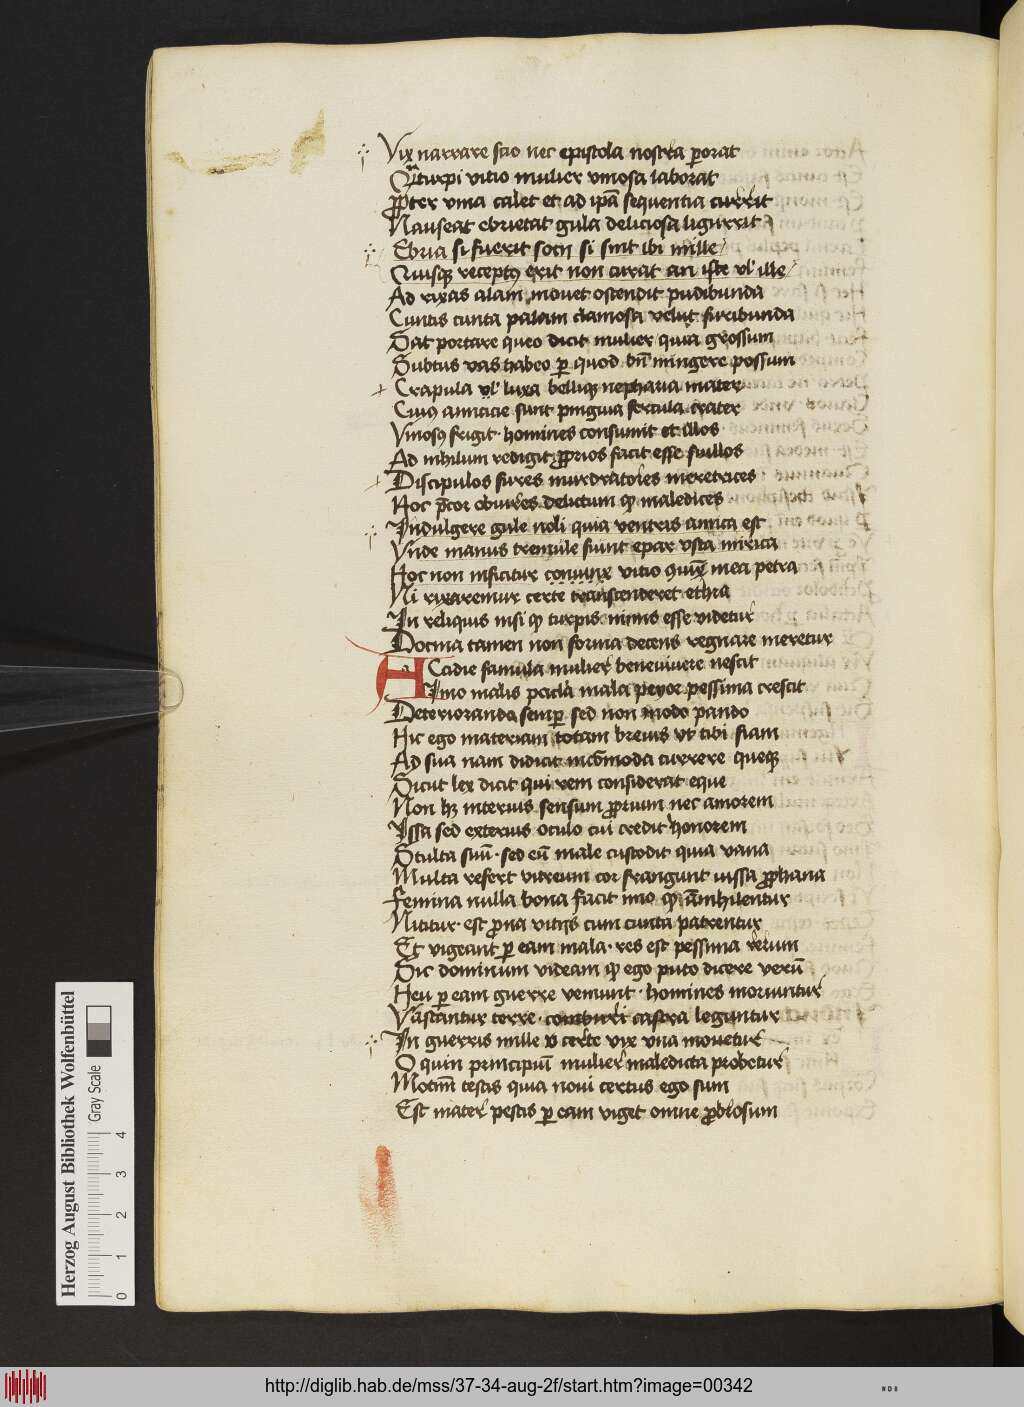 Vix narrare scio nec epistola nostra ꝑorat
Qm̅ turpi vitio mulier vinosa laborat
Ꝓpter vina calet et ad ipā sequentia currit
Nauseat ebrietat gula deliciosa ligurrit
Ebria si fuerit socii si sint ibi mille
Quisqꝫ receptꝰ erit non curat an iste vl' ille
Ad rixas alam mouet ostendit pudibunda
Cuntis cunta palam clamosa velut furibunda
Sat portare queo dicit mulier quia grossum
Subtus vas habeo ꝑ quod bn̄ mingere possum
Crapula vl' luxa belliqꝫ nepharia mater
Cuiꝰ amicicie sunt pinguia fercula crater
Vinosꝰ frigit homines consumit et illos
Ad nihilum redigit ꝓprios facit esse suillos
Discipulos fures murdratores meretrices
Hoc p̄cor obuires delictum qꝫ maledices
Indulgere gule noli quia ventris amica est
Vnde manus tremule fiunt epar vsta mirica
Hoc non inficitur coniunx vitio mea petra
Ni rixaremur certe transcenderet ethra
In reliquis nisi qꝫ turpis nimis esse videtur
Docma tamen non forma decens regnare meretur
ACcidie famula mulier beneuiuere nescit
Imo malis mala peyor pessima crescit
Deterioranda semꝑ sed non modo pando
Hic ego materiam totam breuis vt tibi fiam
Ad sua nam didicit incōmoda currere queqꝫ
Sicut lex dicit qui rem considerat eque
Non hꝫ interius sensum ꝓprium nec amorem
Ipsa sed exterius oculo cui credit honorem
Stulta suū sed eū male custodit quia vana
Multa refert vitreum cor frangunt iussa ꝓphana
Femina nulla bona facit imo qꝫ ānihilentur
Nititur est ꝓna vitijs cum cunta patrentur
Et vigeant ꝑ eam mala res est pessima rerum
Sic dominum videam qꝫ ego puto dicere verū
Heu ꝑ eam guerre veniunt homines moriuntur
Vastantur terre comburi castra leguntur
In guerris mille certe vix vna mouetur
O quin principiū mulier maledicta probetur
testis quia noui certus ego sum
Est mater pestis ꝑ eam viget omne ꝓbrosum
Herzog August Bibliothek Wolfenbüttel
Gray Scale
0 1 2 3 4
http://diglib.hab.de/mss/37-34-aug-2f/start.htm?image=00342